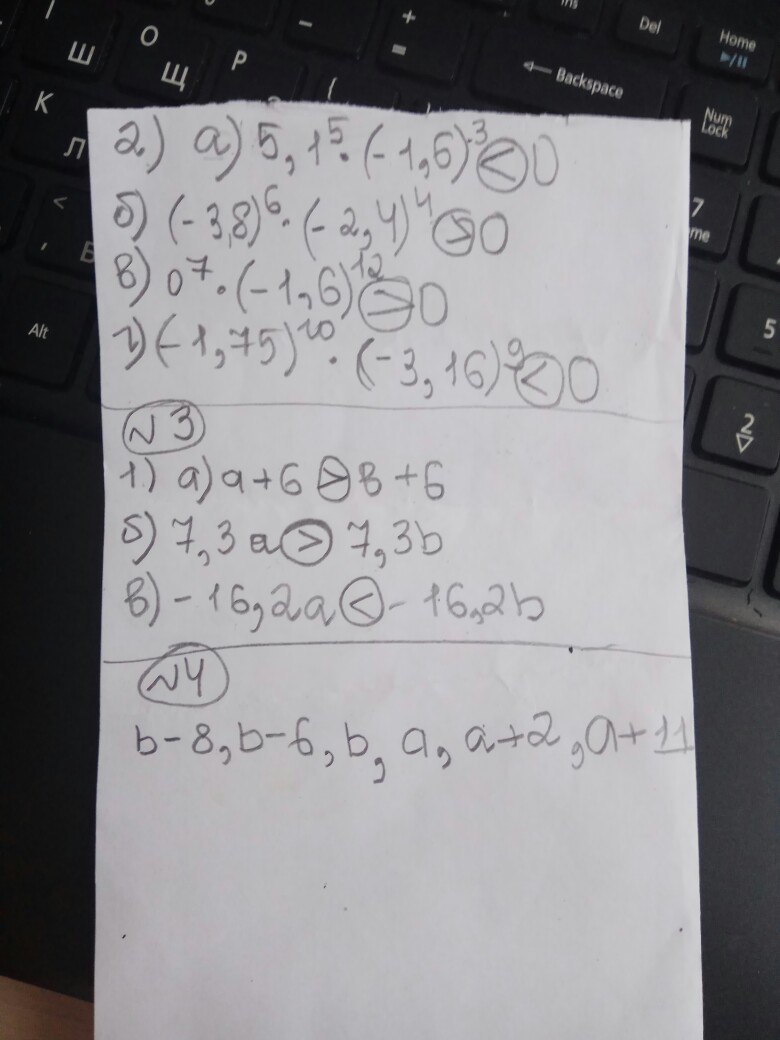 Ins
Del
Home
Ш
О
Щ
Р
+
=
Backspace
К
Л
Num
Lock
Alt
7
me
5
2
2) а) 5,1⁵·(-1,6)³ < 0
б) (-3,8)⁶·(-2,4)⁴ > 0
в) 0⁷·(-1,6)¹² > 0
г) (-1,75)²⁰·(-3,16)⁹ < 0
№3
1) а) a+6 > в+6
б) 7,3a > 7,3b
в) -16,2a < -16,2b
№4
b-8, b-6, b, a, a+2, a+11